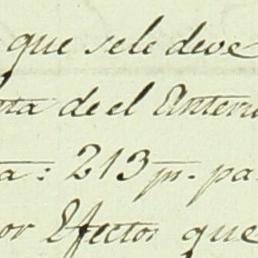 que sele deve
nta de el Anteri
a: 213 p.s pa
or Efectos que